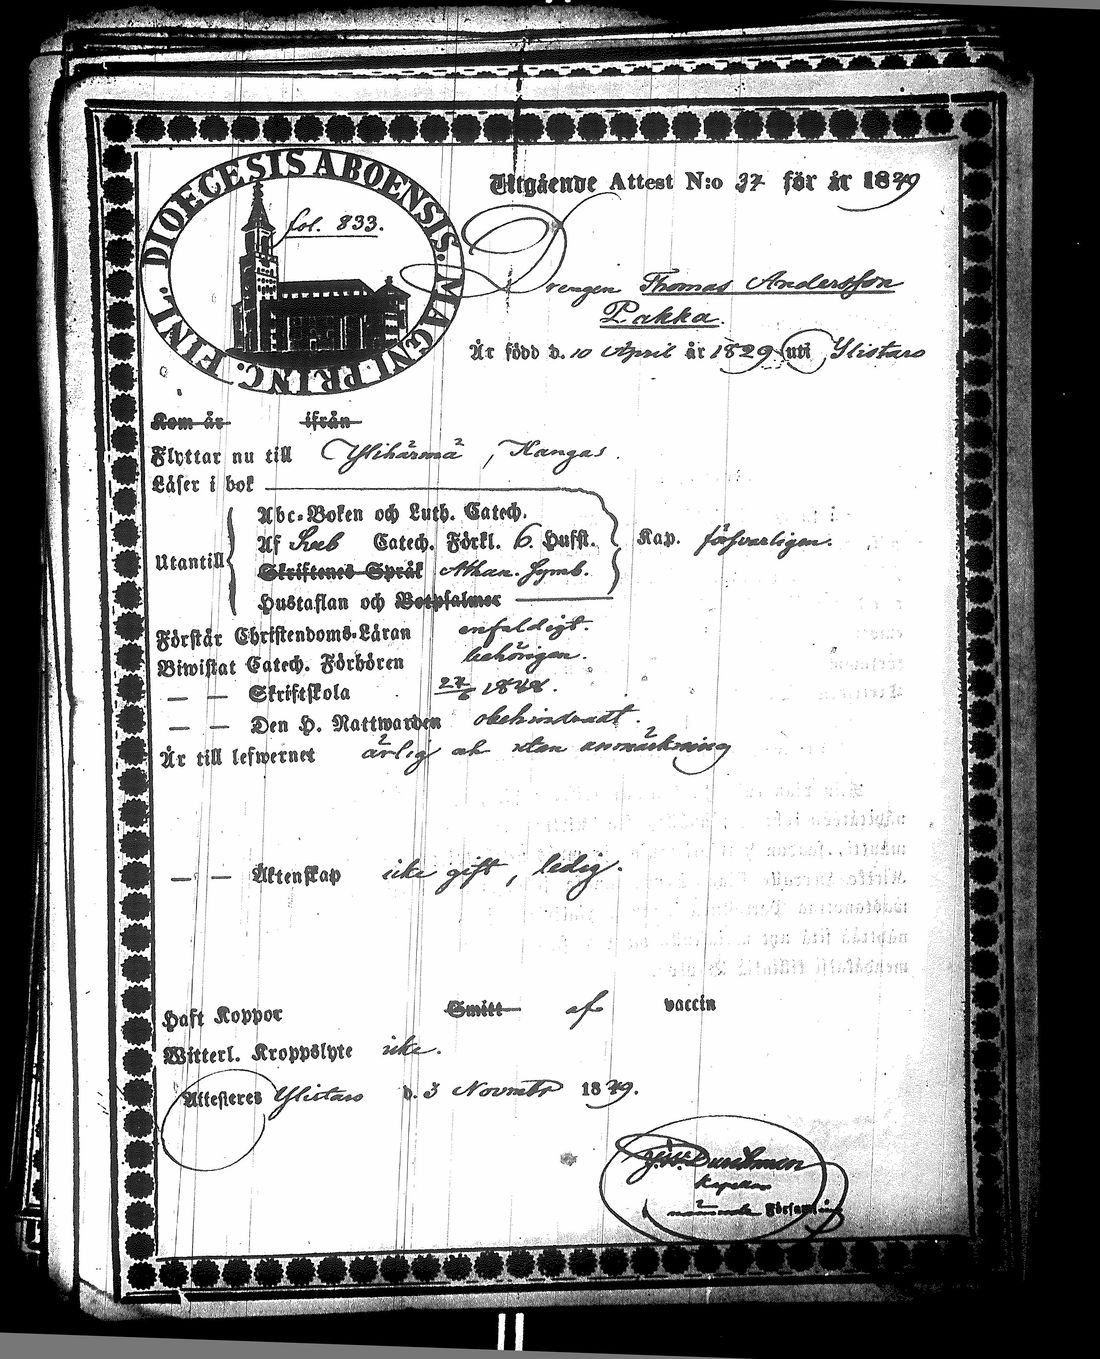 DIOECESIS ABOENSIS. MAGNI PRINC. FINL.
fol. 833.
Utgående Attest N:o 37 för år 1849
Drengen Thomas Andersson
Pakka.
Är född d. 10 April år 1829 uti Ylistaro
Kom år ifrån
Flyttar nu till Ylihärmä, Kangas.
Läser i bok
Abc-Boken och Luth. Catech.
Utantill Af Catech. Förkl. 6. Hufst. Kap. försvarligen.
Skriftenes Språk Athan. Symb.
Hustaflan och Botpsalmer
Förstår Christendoms-Läran enfaldigt.
Biwistat Catech. Förhören behörigen.
— — Skriftskola 27/6 1848.
— — Den H. Nattwarden obehindradt.
Är till lefwernet ärlig ok utan anmärkning
— — Äktenskap icke gift, ledig.
Haft Koppor Smitt af vaccin
Witterl. Kroppslyte icke.
Attesteras Ylistaro d. 3 Novmbr 1849.
Kapellan
Församling